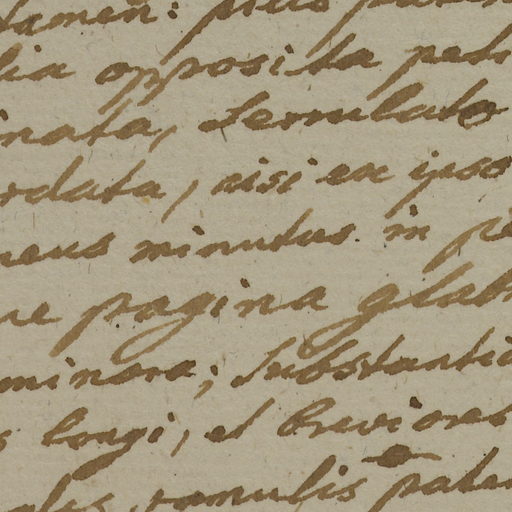 tamen: prius
lia opposita peti
inata, serrulato
rdata, nisi ex ipso
neus minutus in pe
ne pagina glab
minora; substantia
s longi, et breviores
ramulis